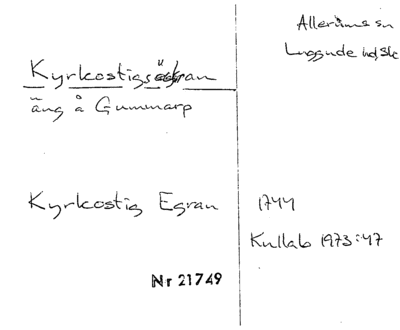 Allerums sn
Luggude hd, Sk
Kyrkostigsägran
äng å Gummarp
Kyrkostig Egran
1744
Kullab 1973:47
Nr 21749